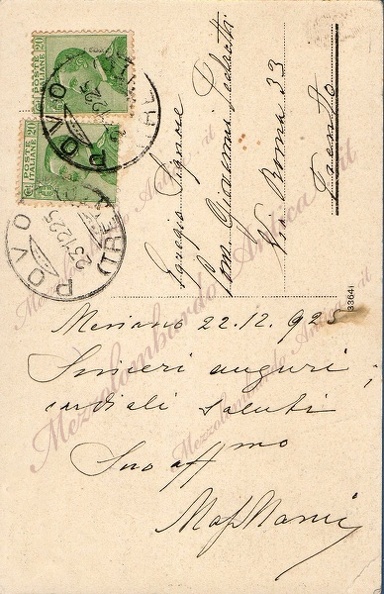 POSTE ITALIANE 20
POSTE ITALIANE 20
POVO
POVO (TRE
23.12.25
Egregio Signore
Com. Giovanni Pedrotti
Via Roma 33
Trento
33641
Mesiano 22.12.925
Sinceri auguri,
cordiali saluti
Suo aff mo
Mezzolombardo Antica
Mezzolombardo Antica .it
Mezzolombardo Antica .it